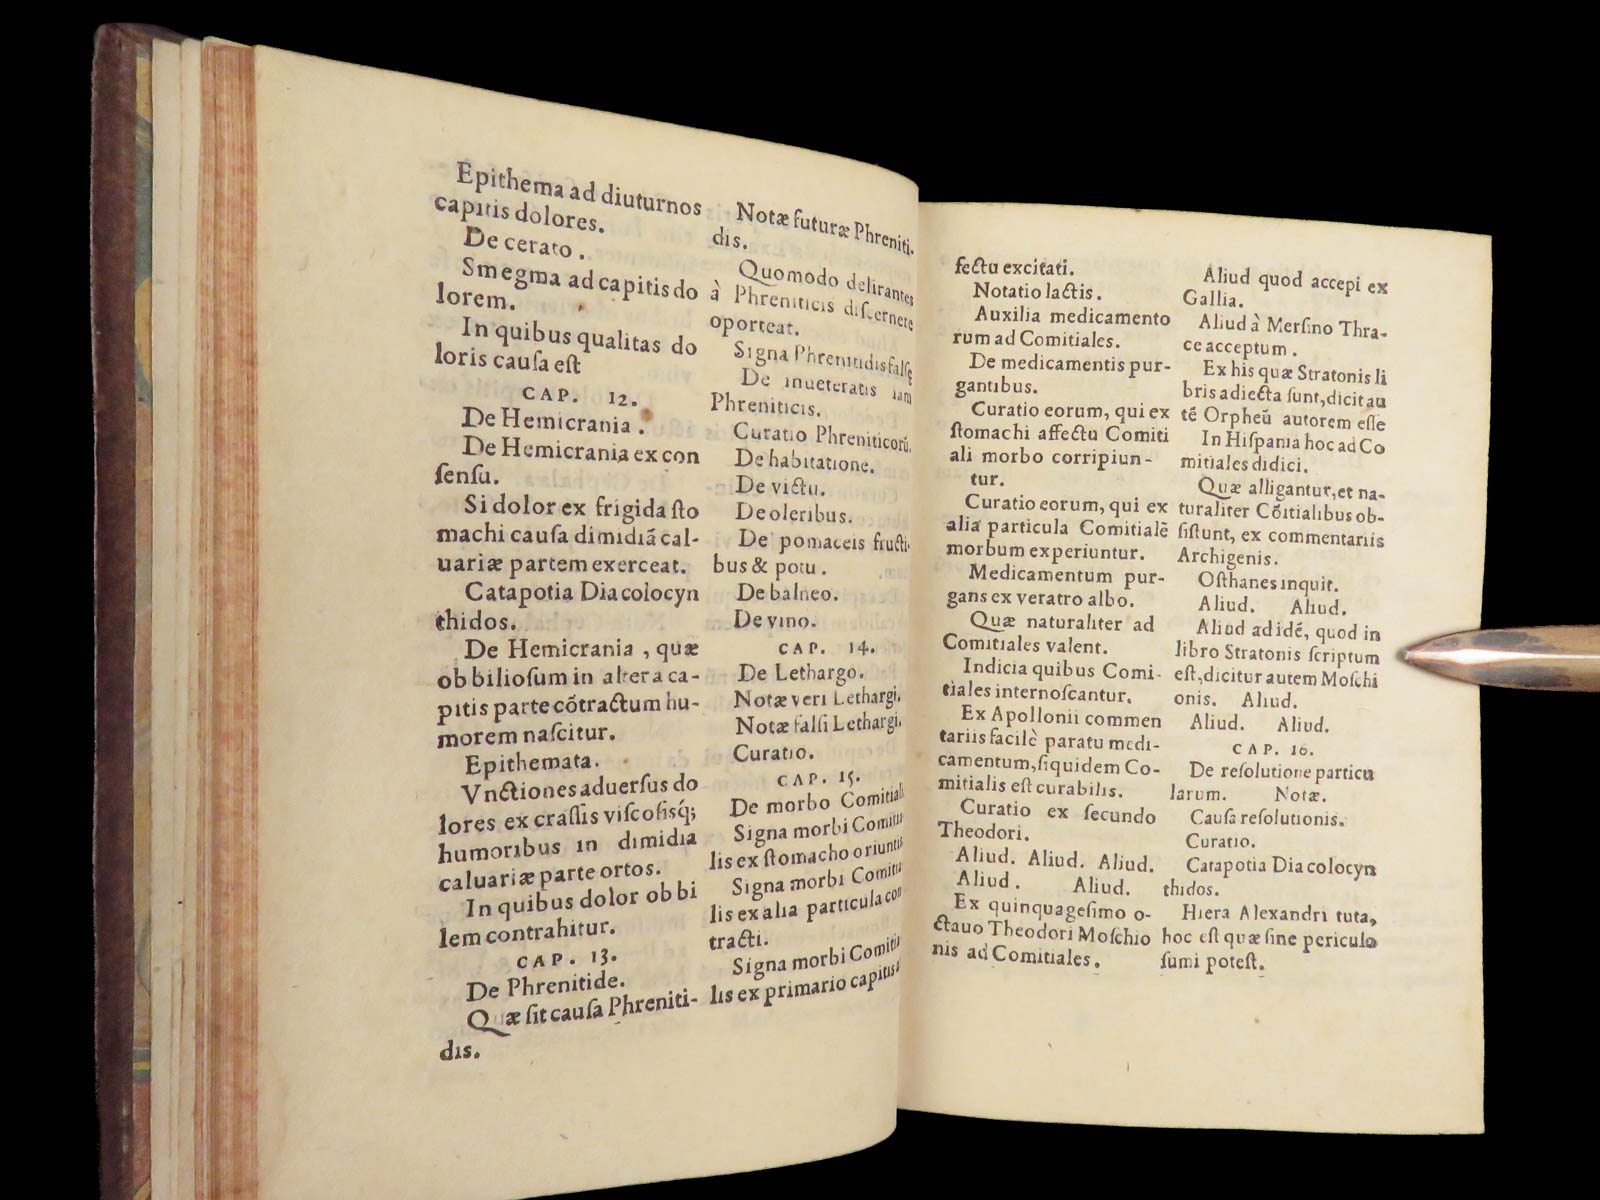 Epithema ad diuturnos
capitis dolores.
De cerato.
Smegma ad capitis do
lorem.
In quibus qualitas do
loris cauſa eſt
CAP. 12.
De Hemicrania.
De Hemicrania ex con
ſenſu.
Si dolor ex frigida ſto
machi cauſa dimidiã cal-
uariæ partem exerceat.
Catapotia Dia colocyn
thidos.
De Hemicrania, quæ
ob bilioſum in altera ca-
pitis parte cõtractum hu-
morem naſcitur.
Epithemata.
Vnctiones aduerſus do
lores ex craſſis viſcoſisq́;
humoribus in dimidia
caluariæ parte ortos.
In quibus dolor ob bi
lem contrahitur.
CAP. 13.
De Phrenitide.
Quæ ſit cauſa Phreniti-
dis.
Notæ futuræ Phreniti-
dis.
Quomodo delirantes
à Phreniticis diſcernere
oporteat.
Signa Phrenitidis falſę
De inueteratis iam
Phreniticis.
Curatio Phreniticorũ.
De habitatione.
De victu.
De oleribus.
De pomaceis fructi-
bus & potu.
De balneo.
De vino.
CAP. 14.
De Lethargo.
Notæ veri Lethargi.
Notæ falſi Lethargi.
Curatio.
CAP. 15.
De morbo Comitiali
Signa morbi Comitia
lis ex ſtomacho oriuntis
Signa morbi Comitia
lis ex alia particula con
tracti.
Signa morbi Comitia
lis ex primario capitis a
fectu excitati.
Notatio lactis.
Auxilia medicamento
rum ad Comitiales.
De medicamentis pur-
gantibus.
Curatio eorum, qui ex
ſtomachi affectu Comiti
ali morbo corripiun-
tur.
Curatio eorum, qui ex
alia particula Comitialẽ
morbum experiuntur.
Medicamentum pur-
gans ex veratro albo.
Quæ naturaliter ad
Comitiales valent.
Indicia quibus Comi-
tiales internoſcantur.
Ex Apollonii commen
tariis facilè paratu medi-
camentum, ſiquidem Co-
mitialis eſt curabilis.
Curatio ex ſecundo
Theodori.
Aliud. Aliud. Aliud.
Aliud. Aliud.
Ex quinquageſimo o-
ctauo Theodori Moſchio
nis ad Comitiales.
Aliud quod accepi ex
Gallia.
Aliud à Merſino Thra-
ce acceptum.
Ex his quæ Stratonis li
bris adiecta ſunt, dicit au
tẽ Orpheũ autorem eſſe
In Hiſpania hoc ad Co
mitiales didici.
Quæ alligantur, et na-
turaliter Cõitialibus ob-
ſiſtunt, ex commentariis
Archigenis.
Oſthanes inquit.
Aliud. Aliud.
Aliud ad idẽ, quod in
libro Stratonis ſcriptum
eſt, dicitur autem Moſchi
onis. Aliud.
Aliud. Aliud.
CAP. 16.
De reſolutione particu
larum. Notæ.
Cauſa reſolutionis.
Curatio.
Catapotia Dia colocyn
thidos.
Hiera Alexandri tuta,
hoc eſt quæ ſine periculo
ſumi poteſt.